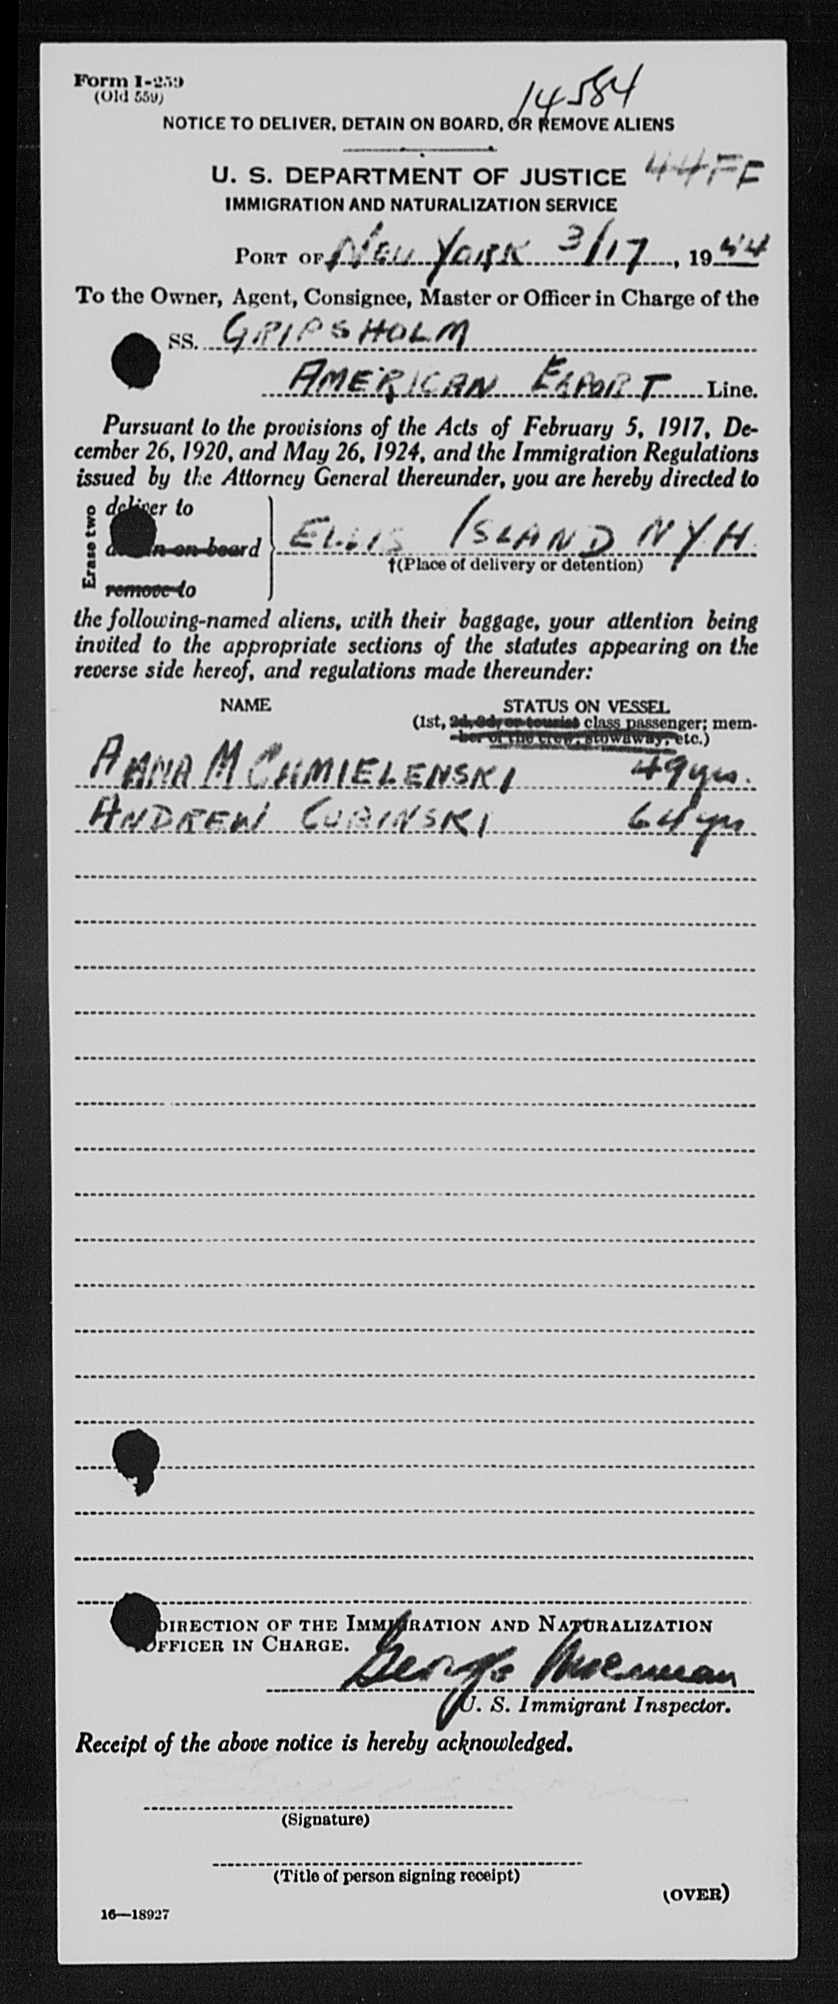 Form I-259
(Old 559)
14584
NOTICE TO DELIVER, DETAIN ON BOARD, OR REMOVE ALIENS
U. S. DEPARTMENT OF JUSTICE 44FF
IMMIGRATION AND NATURALIZATION SERVICE
PORT OF NEW YORK 3/17, 1944
To the Owner, Agent, Consignee, Master or Officer in Charge of the
SS. GRIPSHOLM
AMERICAN EXPORT Line.
Pursuant to the provisions of the Acts of February 5, 1917, De-
cember 26, 1920, and May 26, 1924, and the Immigration Regulations
issued by the Attorney General thereunder, you are hereby directed to
Erase two
deliver to
on board
remove to
ELLIS ISLAND NYH
†(Place of delivery or detention)
the following-named aliens, with their baggage, your attention being
invited to the appropriate sections of the statutes appearing on the
reverse side hereof, and regulations made thereunder:
NAME STATUS ON VESSEL
(1st, 2d, 3d, or tourist class passenger; mem-
ber of the crew, stowaway, etc.)
ANNA M CHMIELENSKI 49 yrs.
ANDREW CUBINSKI 64 yrs
DIRECTION OF THE IMMIGRATION AND NATURALIZATION
OFFICER IN CHARGE.
George
U. S. Immigrant Inspector.
Receipt of the above notice is hereby acknowledged.
(Signature)
(Title of person signing receipt)
(OVER)
16—18927